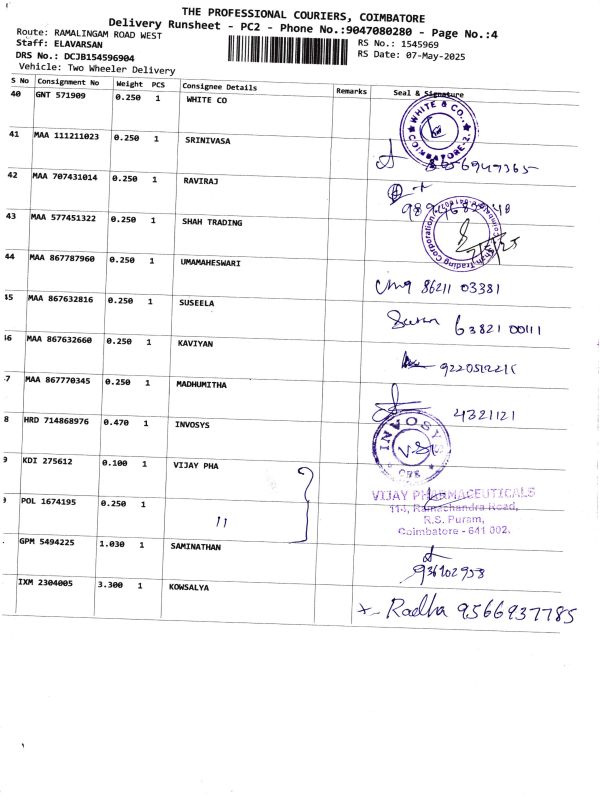 THE PROFESSIONAL COURIERS, COIMBATORE
Delivery Runsheet - PC2 - Phone No.:9047080280 - Page No.:4
Route: RAMALINGAM ROAD WEST
Staff: ELAVARSAN
DRS No.: DCJB154596904
Vehicle: Two Wheeler Delivery
RS No.: 1545969
RS Date: 07-May-2025
S No Consignment No Weight PCS Consignee Details Remarks Seal & Signature
40 GNT 571909 0.250 1 WHITE CO
WHITE & CO.,
COIMBATORE-2.
41 MAA 111211023 0.250 1 SRINIVASA
42 MAA 707431014 0.250 1 RAVIRAJ
43 MAA 577451322 0.250 1 SHAH TRADING
Shah Trading Corporation
44 MAA 867787960 0.250 1 UMAMAHESWARI
86211 03381
45 MAA 867632816 0.250 1 SUSEELA
63821 00111
46 MAA 867632660 0.250 1 KAVIYAN
7 MAA 867770345 0.250 1 MADHUMITHA
4321121
8 HRD 714868976 0.470 1 INVOSYS
INVOSYS
CBE
9 KDI 275612 0.100 1 VIJAY PHA
VIJAY PHARMACEUTICALS
114, Ramachandra Road,
R.S. Puram,
Coimbatore - 641 002.
POL 1674195 0.250 1 "
GPM 5494225 1.030 1 SAMINATHAN
936102958
IXM 2304005 3.300 1 KOWSALYA
Radha 9566937785